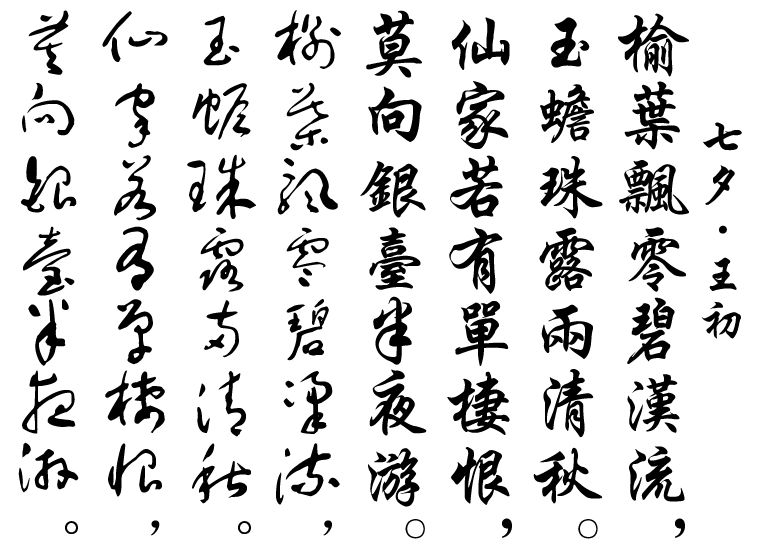 七夕·王初
榆葉飄零碧漢流，
玉蟾珠露兩清秋。
仙家若有單棲恨，
莫向銀臺半夜游。
榆葉飄零碧漢流，
玉蟾珠露兩清秋。
仙家若有單棲恨，
莫向銀臺半夜游。